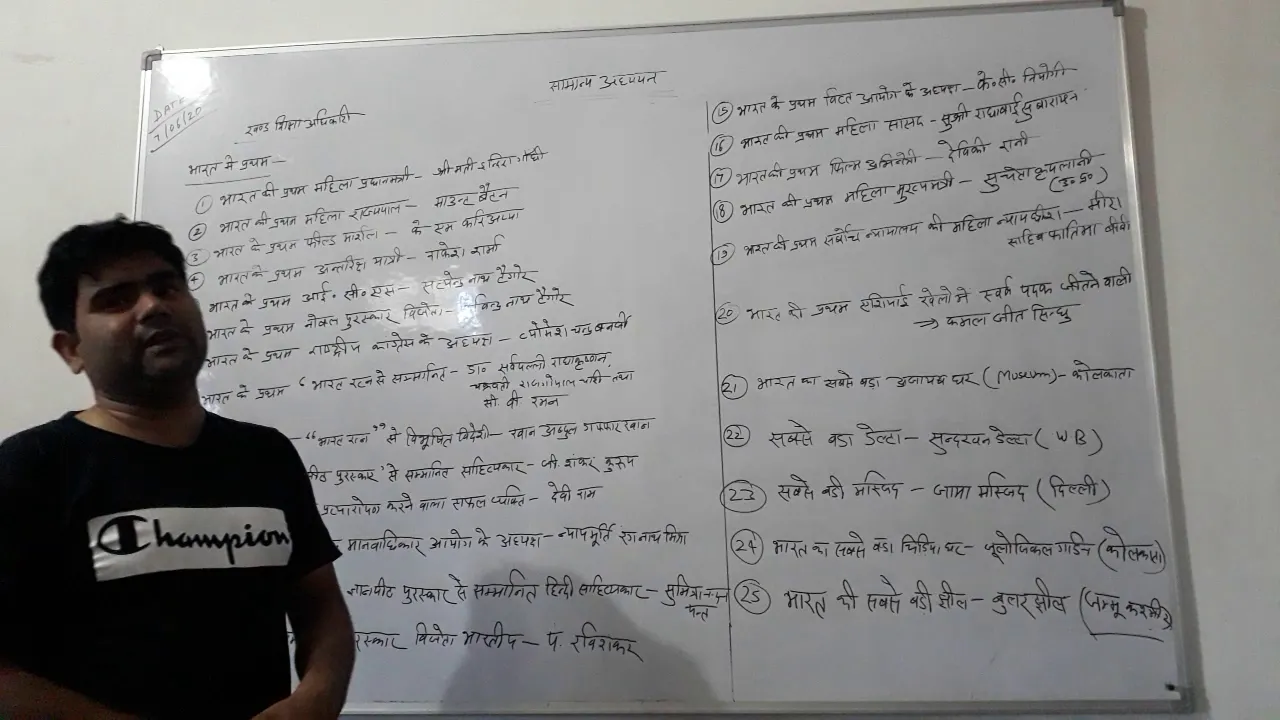 सामान्य अध्ययन
DATE
7/06/20
खण्ड शिक्षा अधिकारी
भारत मे प्रथम —
① भारत की प्रथम महिला प्रधानमन्त्री — श्रीमती इन्दिरा गाँधी
② भारत की प्रथम महिला राज्यपाल — माउन्ट बैटन
③ भारत के प्रथम फील्ड मार्शल — के एम करिअप्पा
④ भारत के प्रथम अन्तरिक्ष यात्री — राकेश शर्मा
भारत के प्रथम आई॰ सी॰ एस — सत्येन्द्र नाथ टैगोर
भारत के प्रथम नोबल पुरस्कार विजेता — रविन्द्र नाथ टैगोर
भारत के प्रथम राष्ट्रीय कांग्रेस के अध्यक्ष — व्योमेश चन्द्र बनर्जी
भारत के प्रथम "भारत रत्न से सम्मानित — डा॰ सर्वपल्ली राधाकृष्णन,
चक्रवर्ती राजगोपाल चारी तथा
सी. वी रमन
— "भारत रत्न" से विभूषित विदेशी — खान अब्दुल गफ्फार खान
पीठ पुरस्कार' से सम्मानित साहित्यकार — जी. शंकर कुरूप
प्रत्यारोपण कराने वाला सफल व्यक्ति — देवी राम
मानवाधिकार आयोग के अध्यक्ष — न्यायमूर्ति रंगनाथ मिश्रा
ज्ञानपीठ पुरस्कार से सम्मानित हिन्दी साहित्यकार — सुमित्रानन्दन
पन्त
पुरस्कार विजेता भारतीय — पं. रविशंकर
⑮ भारत के प्रथम वित्त आयोग के अध्यक्ष — के॰ सी॰ नियोगी
⑯ भारत की प्रथम महिला सांसद - सुश्री राधाबाई सुबारायन
⑰ भारत की प्रथम फिल्म अभिनेत्री — देविकी रानी
⑱ भारत की प्रथम महिला मुख्यमन्त्री — सुचेता कृपलानी
(उ॰प्र॰)
⑲ भारत की प्रथम सर्वोच्च न्यायालय की महिला न्यायाधीश — मीरा
साहिब फातिमा बीबी
⑳ भारत की प्रथम एशियाई खेलो मे स्वर्ण पदक जीतने वाली
→ कमलजीत सिन्धु
㉑ भारत का सबसे बडा अजायब घर (Museum) - कोलकाता
㉒ सबसे बडा डेल्टा — सुन्दरवन डेल्टा (WB)
㉓ सबसे बडी मस्जिद — जामा मस्जिद (दिल्ली)
㉔ भारत का सबसे बडा चिडिया घर — जूलोजिकल गार्डन (कोलकाता)
㉕ भारत की सबसे बडी झील — वुलर झील (जम्मू कश्मीर)
Champion